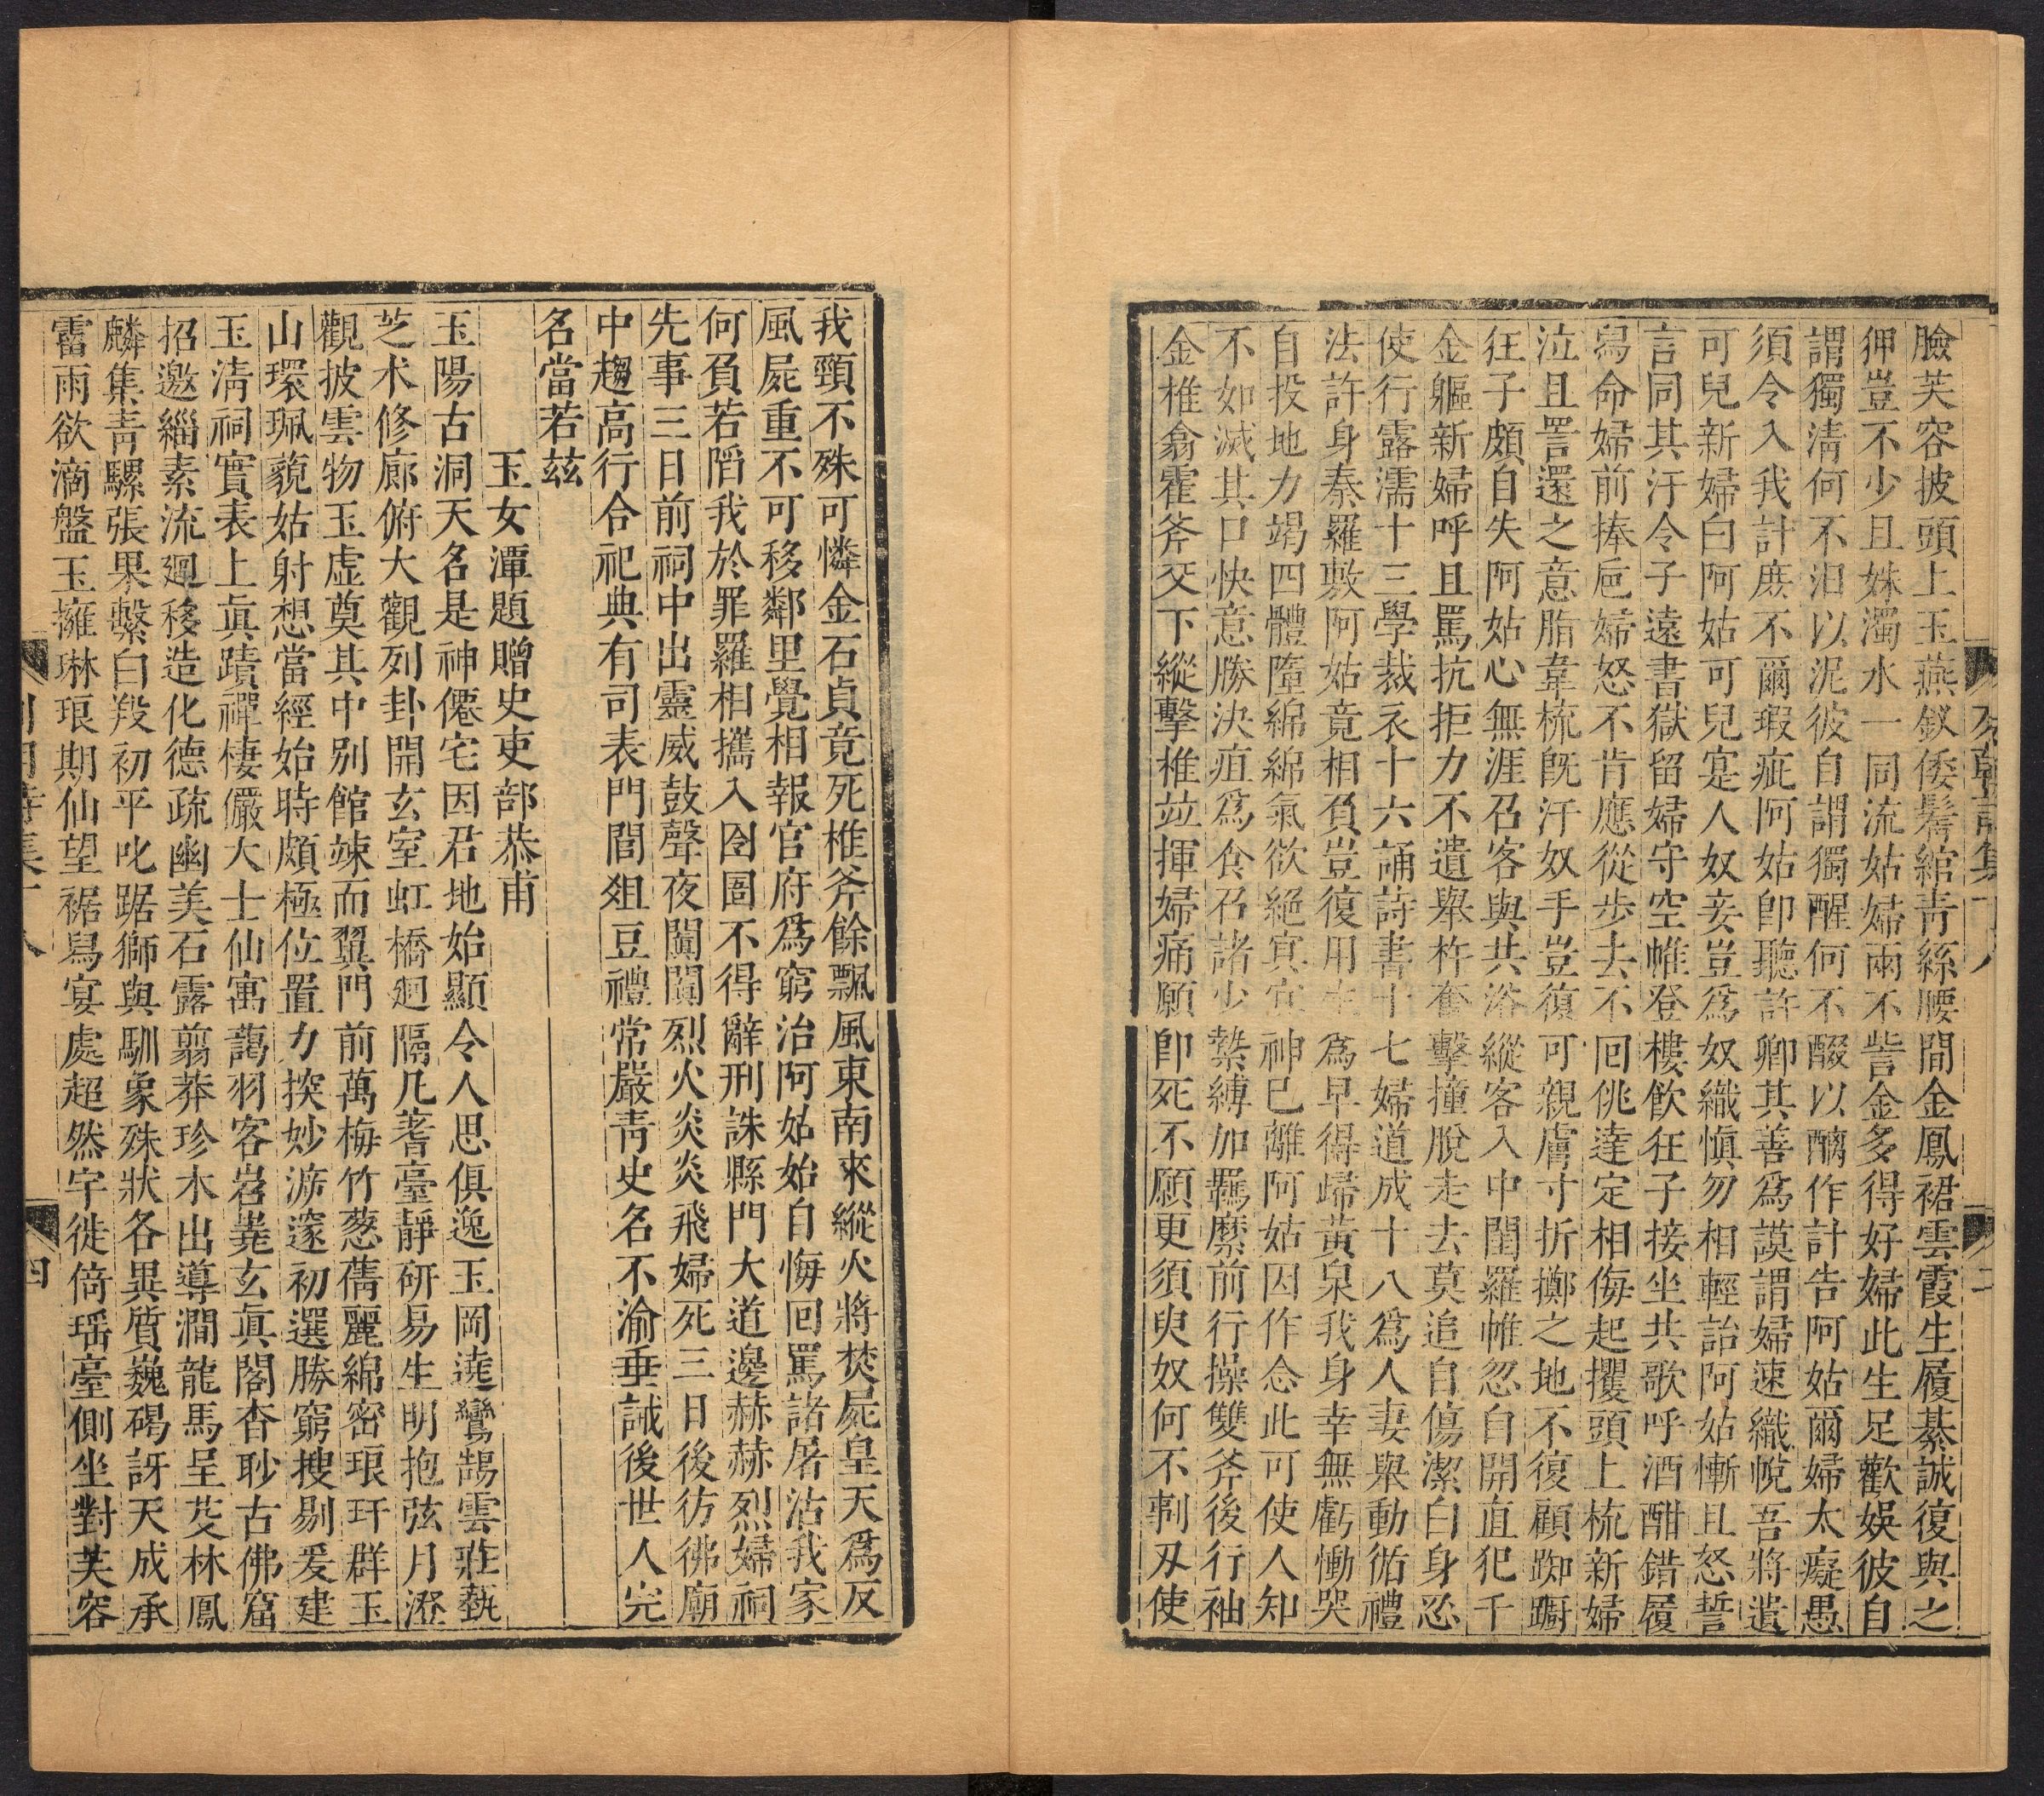 臉芙容披頭上玉燕釵倭鬌綰青絲腰間金鳳裙雲霞生履綦誠復與之
狎豈不少且姝濁水一同流姑婦兩不訾金多得好婦此生足歡娛彼自
謂獨淸何不汩以泥彼自謂獨醒何不醊以醨作計告阿姑爾婦太癡愚
須令入我計庶不爾瑕疵阿姑卽聽許卿其善爲謨謂婦速織帨吾將遺
可兒新婦白阿姑可兒寔人奴妾豈爲奴織愼勿相輕詒阿姑慚且怒誓
言同其汙令子遠書獄留婦守空帷登樓飲狂子接坐共歌呼酒酣錯履
舄命婦前捧巵婦怒不肯應從步去不囘佻達定相侮起攫頭上梳新婦
泣且詈還之意脂韋梳旣汗奴手豈復可親膚寸折擲之地不復顧踟躕
狂子頗自失阿姑心無涯召客與共浴縱客入中閨羅帷忽自開直犯千
金軀新婦呼且罵抗拒力不遺舉杵奮擊撞脫走去莫追自傷潔白身忍
使行露濡十三學裁衣十六誦詩書十七婦道成十八爲人妻舉動循禮
法許身秦羅敷阿姑竟相負豈復用生爲早得歸黃泉我身幸無虧慟哭
自投地力竭四體墮綿綿氣欲絕寘寘神已離阿姑因作念此可使人知
不如滅其口快意勝決疽爲食召諸少縶縛加羈縻前行操雙斧後行袖
金椎翕霍斧交下縱擊椎竝揮婦痛願卽死不願更須臾奴何不剚刃使
我頸不殊可憐金石貞竟死椎斧餘飄風東南來縱火將焚屍皇天爲反
風屍重不可移鄰里覺相報官府爲窮治阿姑始自悔囘罵諸屠沽我家
何負若陷我於罪羅相攜入囹圄不得辭刑誅縣門大道邊赫赫烈婦祠
先事三日前祠中出靈威鼓聲夜闐闐烈火炎炎飛婦死三日後彷彿廟
中趨高行合祀典有司表門閭俎豆禮常嚴靑史名不渝垂誡後世人完
名當若茲
玉女潭題贈史吏部恭甫
玉陽古洞天名是神僊宅因君地始顯令人思俱逸玉岡遶鸞鵠雲莊蓺
芝朮修廊俯大觀列卦開玄室虹橋廻隔凡蓍臺靜硏易生明抱弦月澄
觀披雲物玉虛奠其中別館竦而翼門前萬梅竹蔥蒨麗綿密琅玕群玉
山環珮藐姑射想當經始時頗極位置力揬妙泝邃初選勝窮搜剔爰建
玉淸祠實表上眞蹟禪棲儼大士仙寓藹羽客岧嶤玄眞閣杳眇古佛窟
招邀緇素流廻移造化德疏幽美石露翦莽珍木出導澗龍馬呈芟林鳳
麟集靑騾張果繫白羖初平叱踞獅與馴象殊狀各異質巍碣訝天成承
霤雨欲滴盤玉擁琳琅期仙望裾舄宴處超然宇徙倚瑤臺側坐對芙容
四